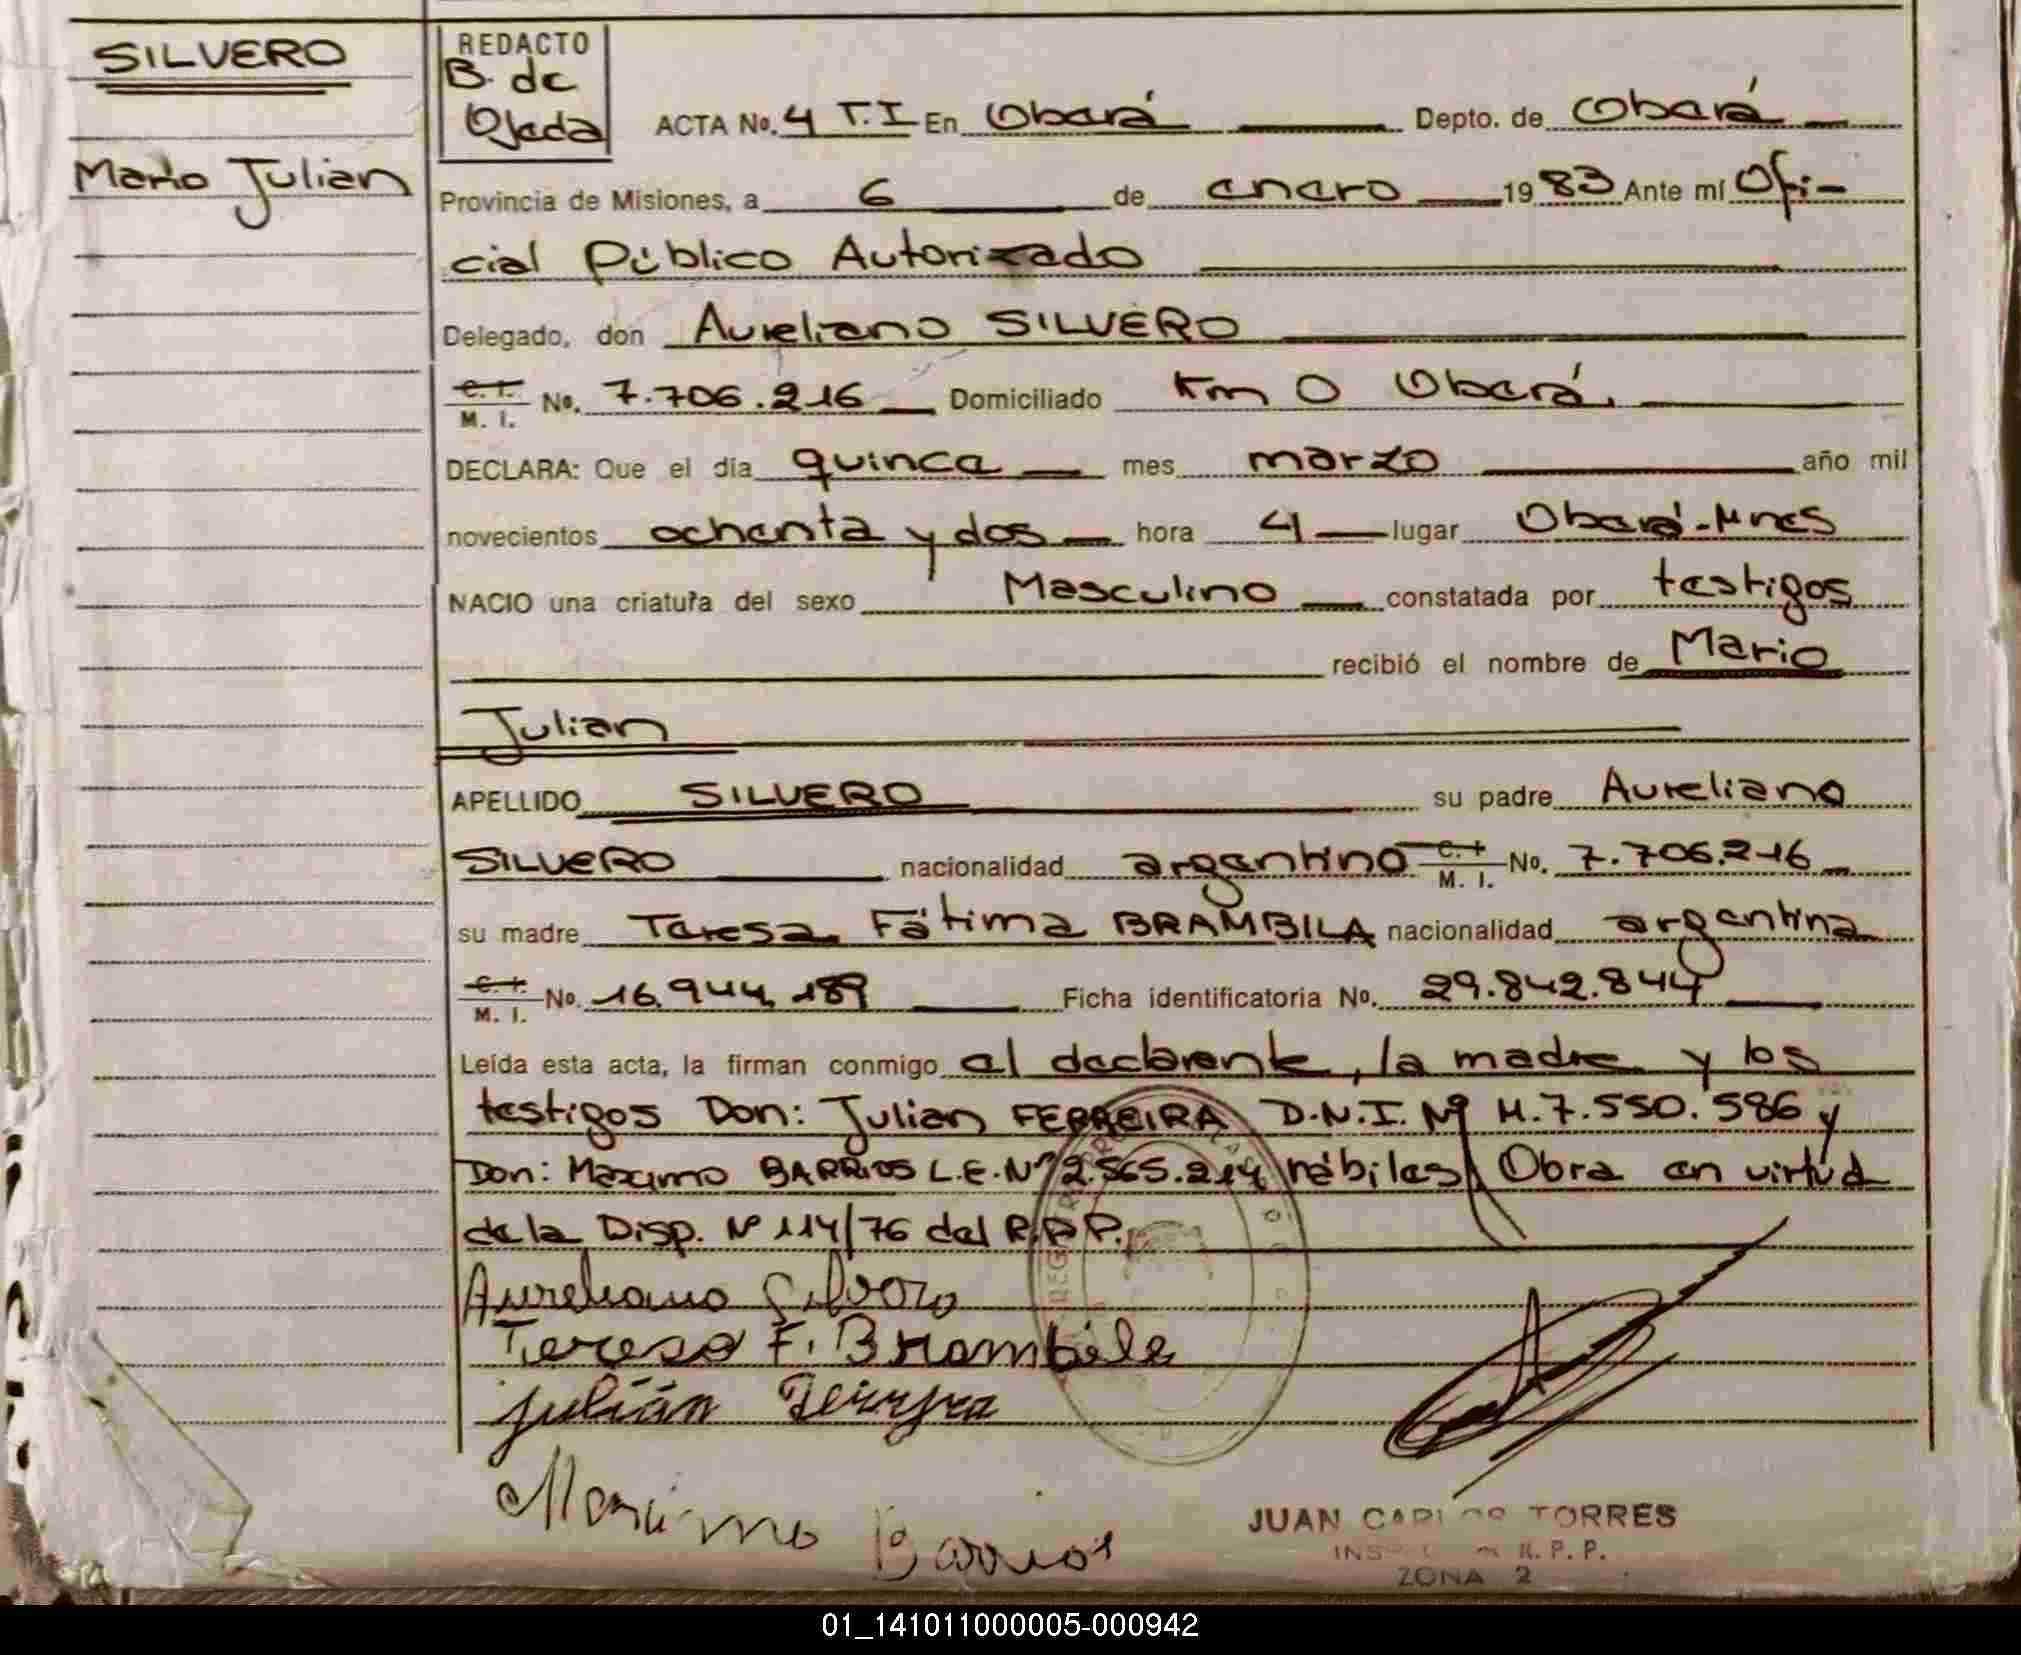 SILVERO
Mario Julian
REDACTO
B. de
Ojeda
ACTA No. 4 T.I En Oberá Depto. de Oberá
Provincia de Misiones, a 6 de enero 1983 Ante mí Ofi-
cial Público Autorizado
Delegado, don Aureliano SILVERO
C. I. M. I. No. 7.706.216 Domiciliado Km 0 Oberá.
DECLARA: Que el día quince mes marzo año mil
novecientos ochenta y dos hora 4 lugar Oberá-Mnes
NACIO una criatura del sexo Masculino constatada por testigos
recibió el nombre de Mario
Julian
APELLIDO SILVERO su padre Aureliano
SILVERO nacionalidad argentino C. I. M. I. No. 7.706.216
su madre Teresa Fátima BRAMBILA nacionalidad argentina
C. I. M. I. No. 16.944.189 Ficha identificatoria No. 29.842.844
Leída esta acta, la firman conmigo el declarente, la madre y los
testigos Don: Julian FERREIRA D.N.I. Nº M.7.550.586 y
Don: Maximo BARRIOS L.E. Nº 2.565.214 hábiles Obra en virtud
de la Disp. Nº 114/76 del R.P.P.
Aureliano Silvero
Teresa F. Brambila
Julián Ferreyra
Maximo Barrios
JUAN CARLOS TORRES
R. P. P.
ZONA 2
01_141011000005-000942